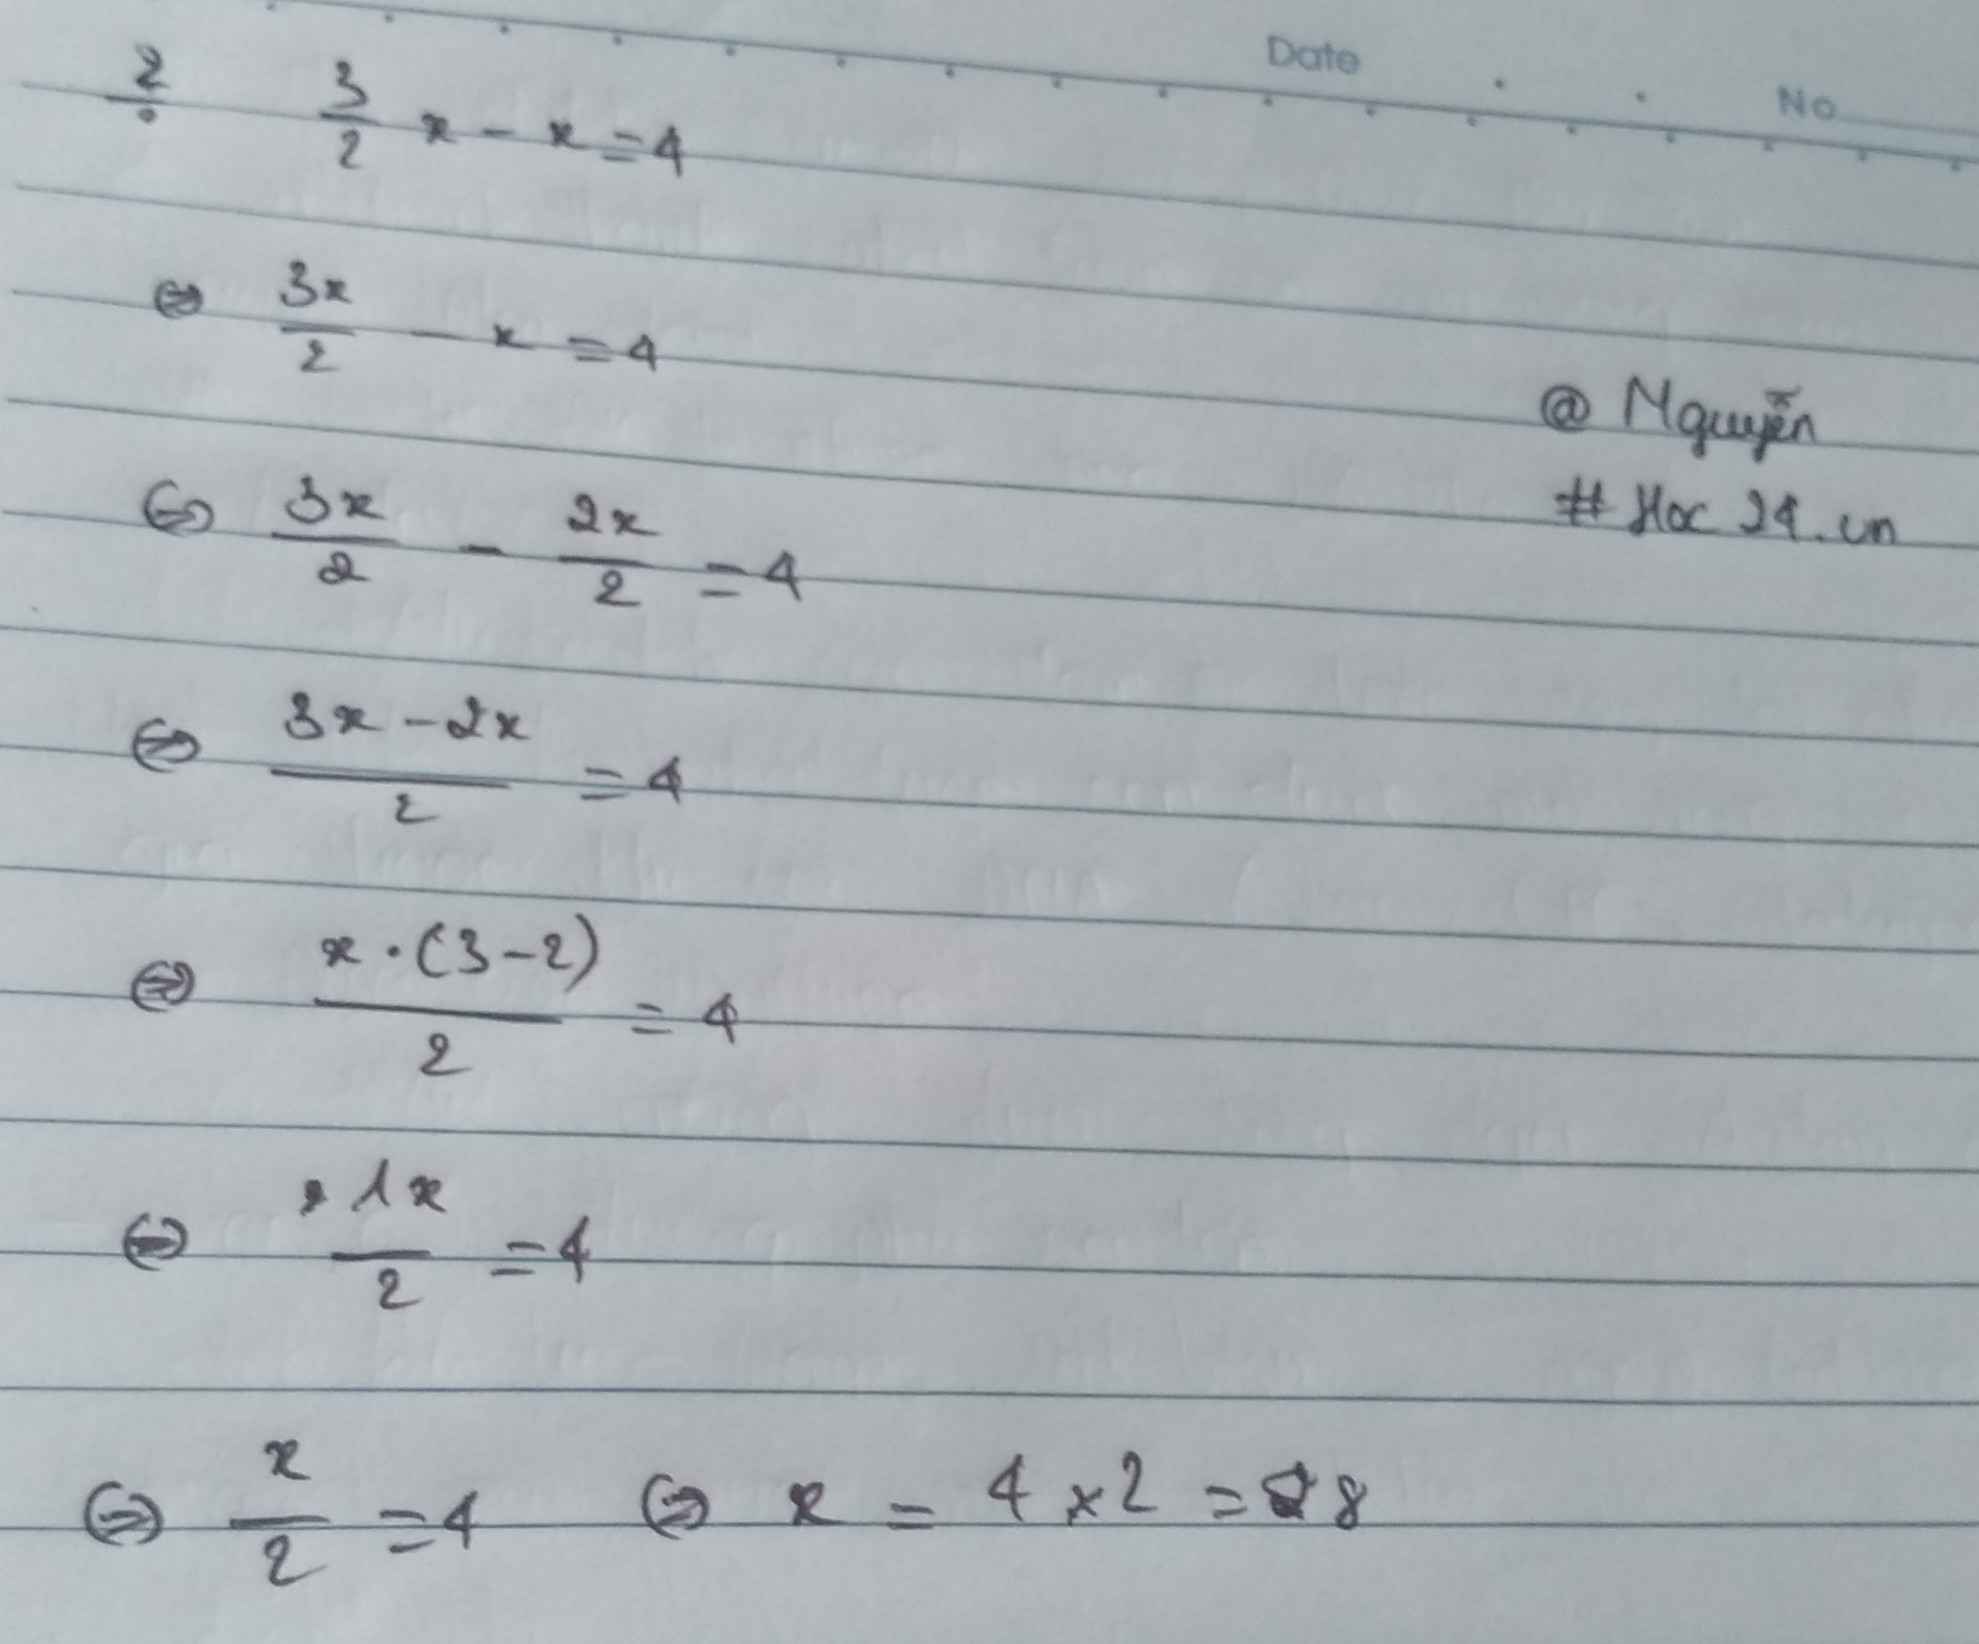 Date
No
2 : 3/2 x - x = 4
⇔ 3x/2 - x = 4
@ Nguyễn
# Hoc 24.vn
⇔ 3x/2 - 2x/2 = 4
⇔ (3x - 2x)/2 = 4
⇔ x·(3-2)/2 = 4
⇔ 1x/2 = 4
⇔ x/2 = 4 ⇔ x = 4 × 2 = 8